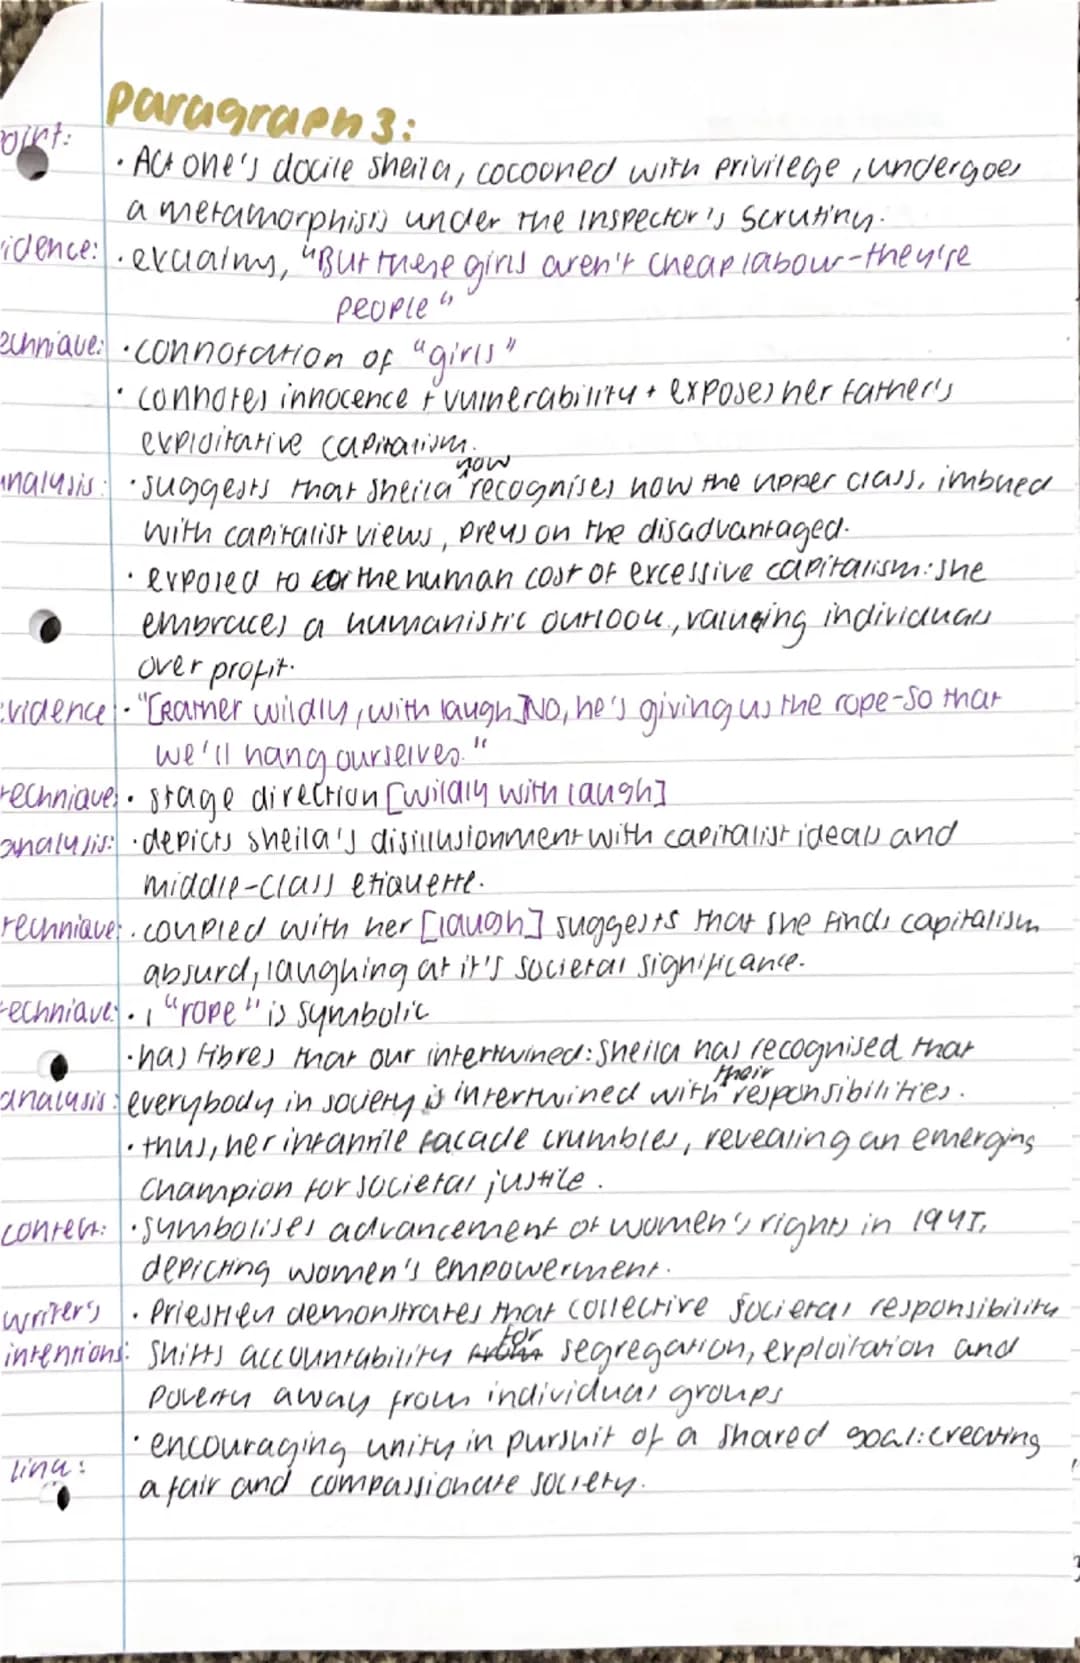 paragraph 3:
point: · Act one's docile sheila, cocooned with privilege, undergoes
a metamorphisis under the inspector's scrutiny.
idence: · exclaims, "But these girls aren't cheap labour-they're
people"
echnique: · connotation of "girls"
· connotes innocence + vulnerability + exposes her father's
exploitative capitalism.
analysis: · suggests that sheila now recognises how the upper class, imbued
with capitalist views, preys on the disadvantaged.
· exposed to the human cost of excessive capitalism: she
embraces a humanistic outlook, valueing individuals
over profit.
evidence · "[Rather wildly, with laugh] NO, he's giving us the rope-so that
we'll hang ourselves."
technique: · stage direction [wildly with laugh]
analysis: · depicts sheila's disillusionment with capitalist ideals and
middle-class etiquette.
technique: · coupled with her [laugh] suggests that she finds capitalism
absurd, laughing at it's societal significance.
technique: · "rope" is symbolic
· has fibres that our intertwined: sheila has recognised that
analysis: everybody in society is intertwined with their responsibilities.
· thus, her infantile facade crumbles, revealing an emerging
champion for societal justice.
context: · symbolises advancement of women's rights in 1945,
depicting women's empowerment.
writer's · Priestley demonstrates that collective societal responsibility
intentions: shifts accountability for segregation, exploitation and
poverty away from individual groups
· encouraging unity in pursuit of a shared goal: creating
link: a fair and compassionate society.